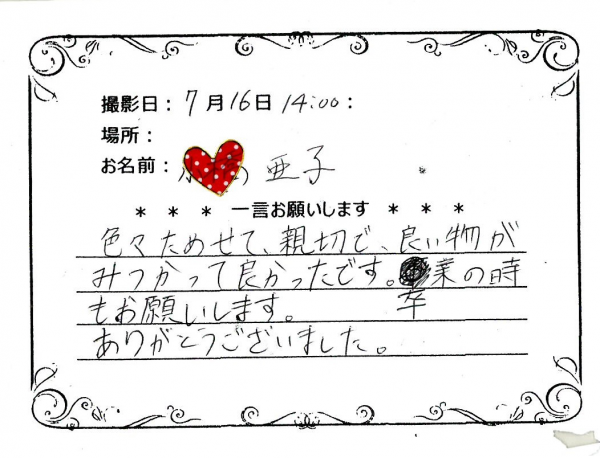 撮影日：7月16日 14:00：
場所：
お名前： 亜子
＊ ＊ ＊ 一言お願いします ＊ ＊ ＊
色々ためせて、親切で、良い物が
みつかって良かったです。卒業の時
もお願いします。
ありがとうございました。